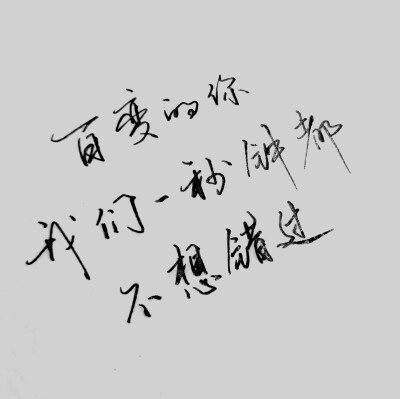 百变的你
我们一秒钟都
不想错过